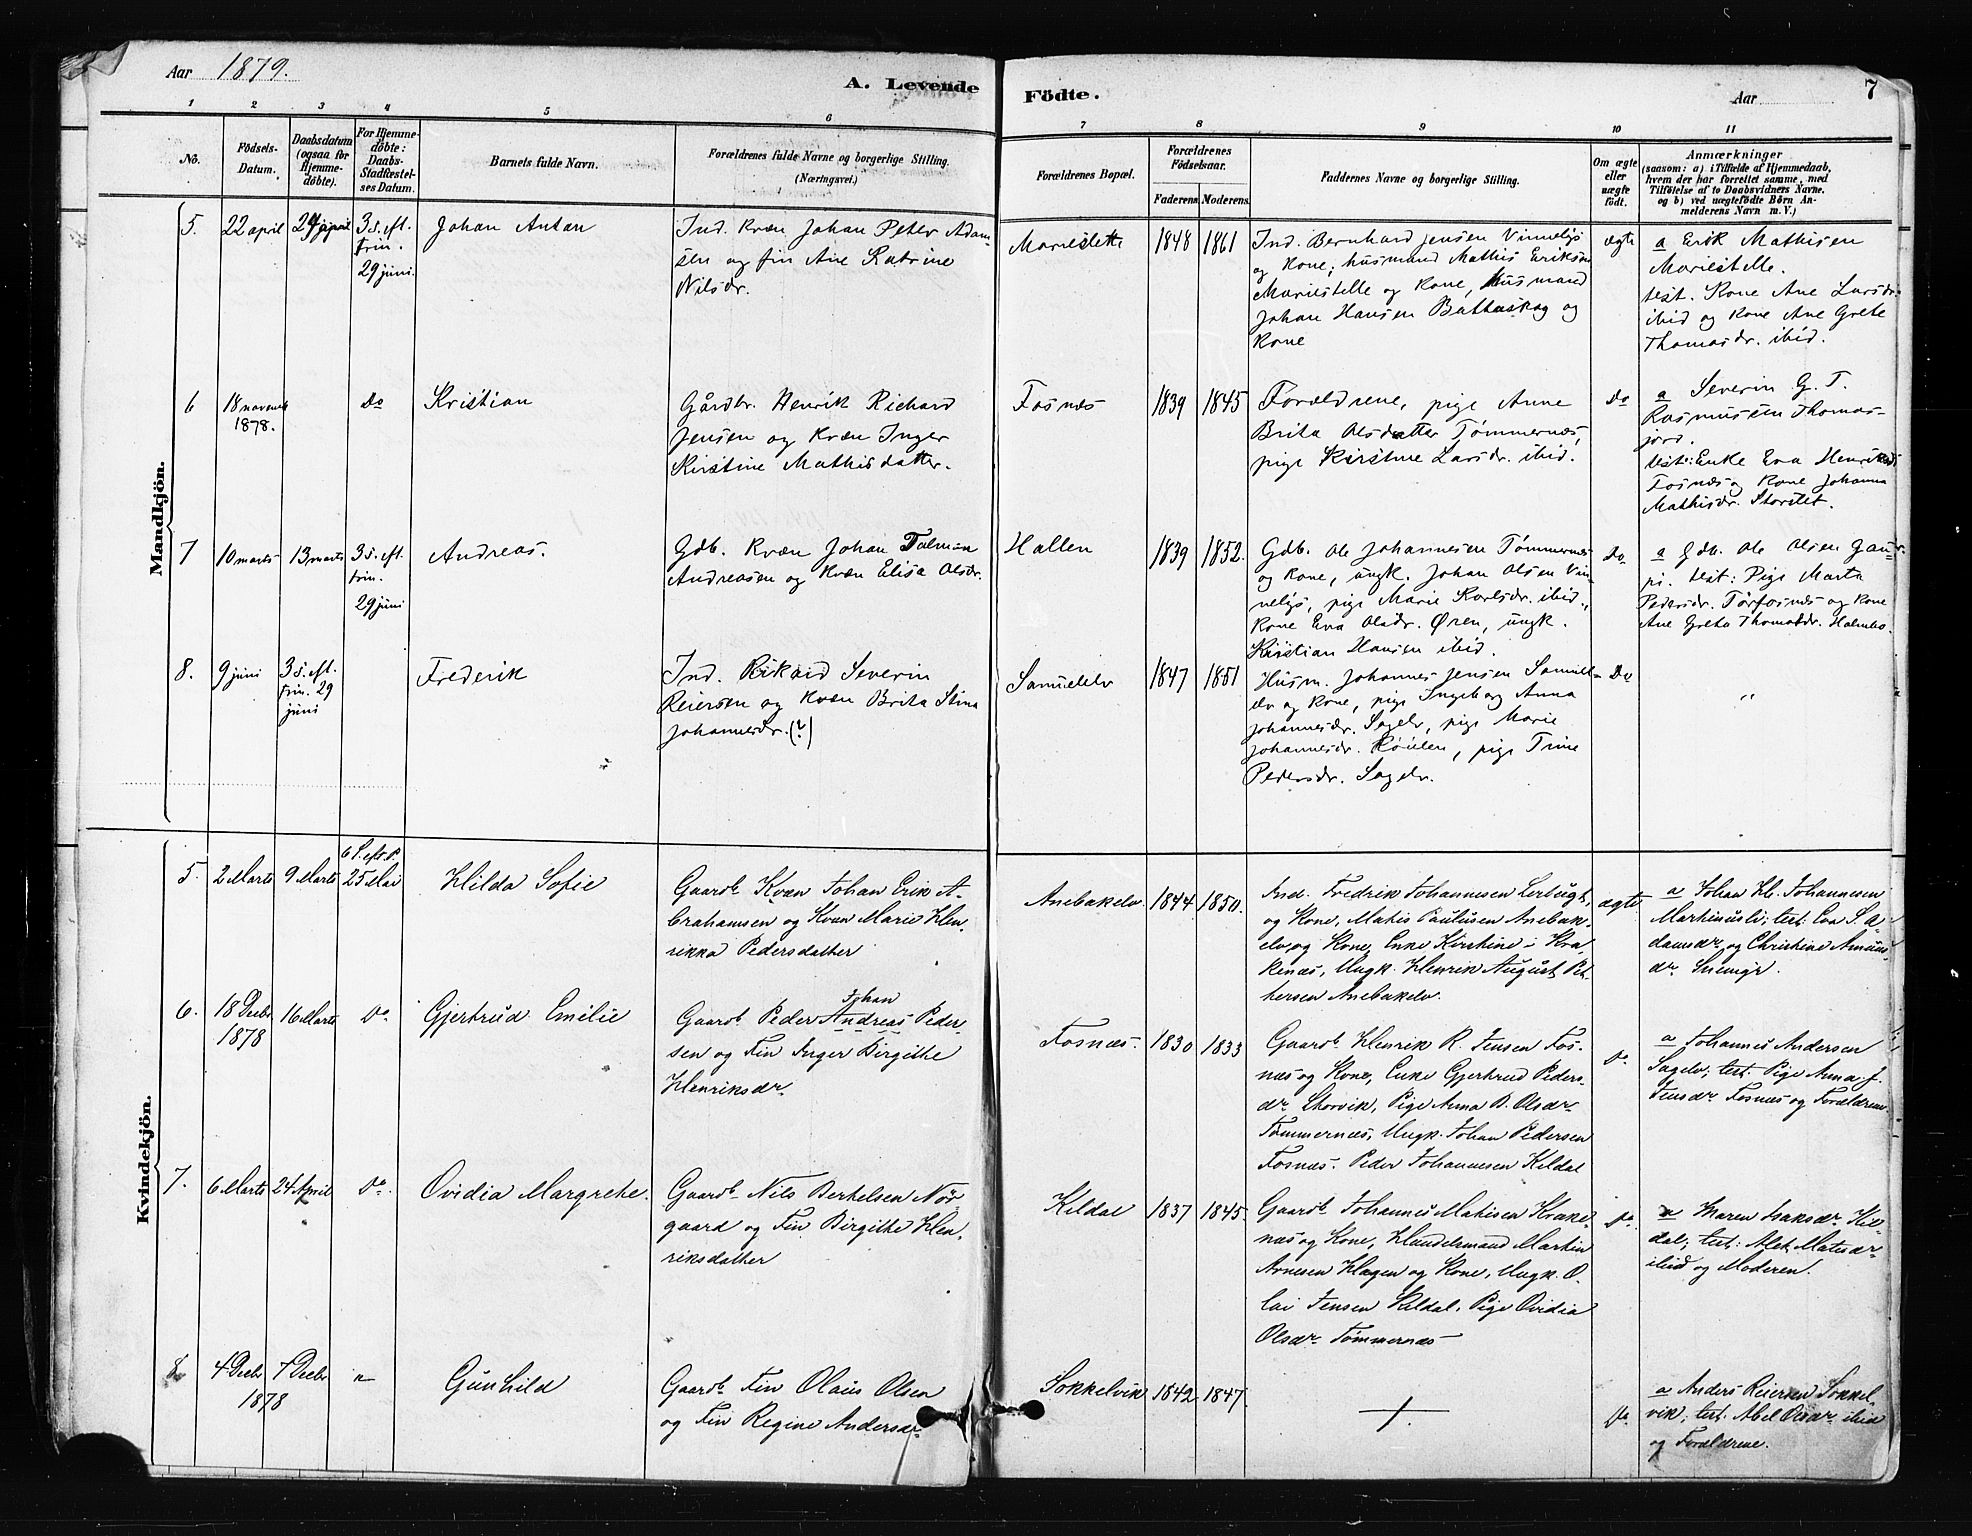 Aar 1879.
A. Levende
Födte.
Aar
7
1 2 3 4 5 6
7 8 9 10 11
No.
Födsels-
Datum.
Daabsdatum
(ogsaa for
Hjemme-
döbte).
For Hjemme-
döbte:
Daabs-
Stadfæstel-
ses Datum.
Barnets fulde Navn.
Forældrenes fulde Navne og borgerlige Stilling.
(Næringsvei.)
Forældrenes Bopæl.
Forældrenes
Födselsaar.
Faderens Moderens.
Faddernes Navne og borgerlige Stilling.
Om ægte
eller
uægte
födt.
Anmærkninger
(saasom: a) i Tilfælde af Hjemmedaab,
hvem der har forrettet samme, med
Tilföielse af to Daabsvidners Navne.
og b) ved uægtefödte Börn An-
melderens Navn m. V.)
Mandkjön.
5.
22 april
3 s. eft.
trin.
29 juni.
Johan Antan
Ind. Kvæn Johan Peter Adam-
sen og fin Ane Katrine
Nilsdr.
1848
1861
Ind. Bernhard Jensen Vinneligs
og Kone; husmand Mathis Eriksen
og Kone, Husmand
Johan Hansen og
Kone
ægte
a Erik Mathisen
test. Kone Ane Larsdr.
ibid og Kone Ane Grete
Thomasdr. ibid.
6
18 novemb
1878.
Do
Kristian
Gårdbr. Henrik Richard
Jensen og Kvæn Inger
Kirstine Mathisdatter.
Fosnæs
1839
1845
Forældrene, pige Anne
Brita Olsdatter Tømmernæs,
pige Kirstine Larsdr. ibid.
Do
a Severin G. T.
Rasmussen Thomas-
jord.
test: Enke Eva
Fosnæs og Kone Johanna
Mathisdr. Storslet.
7
10 marts
13 marts
3 s. eft.
trin.
29 juni
Andreas.
Gdb. Kvæn Johan
Andreasen og Kvæn Elisa Olsdr.
Hallen
1839
1852.
Gdb. Ole Johannesen Tømmernæs
og Kone, ungk. Johan Olsen Vin-
neligs, pige Marie Karlsdr. ibid.,
Kone Eva Olsdr. Øren, ungk.
Kristian Hansen ibid.
Do
a Gdb. Ole Olsen
test: Pige Marta
Pedersdr. Tørfosnæs og Kone
Ane Greta Thomasdr. Holmbo.
8.
9 juni
3 s. eft.
trin. 29
juni
Frederik
Ind. Rikard Severin
Reiersen og Kvæn Brita Stina
Johannesdr. (?)
Samuelelv
1847
1851
Husm. Johannes Jensen Samuel-
elv og Kone, pige Ingeborg Anna
Johannesdr. Sagelv, pige Marie
Johannesdr. pige Trine
Pedersdr. Sagelv.
Do
"
Kvindekjön.
5.
2 Marts
9 Marts
6 S. eft. P.
25 Mai
Hilda Sofie
Gaardb. Kvæn Johan Erik A-
brahamsen og Kvæn Marie Hen-
rikka Pedersdatter
Anebakelv.
1844
1850.
Ind. Fredrik Johannesen
og Kone, Matis Paulusen Anebak-
elv og Kone, Enke Kirstine i Kra-
kenæs, Ungk. Henrik August Pet-
tersen Anebakelv.
ægte.
a Johan H. Johannesen
Martinusli; test. Eva S. A-
damsdr. og Christine
6.
18 Decbr
1878
16 Marts
Do.
Gjertrud Emilie
Gaardb. Peder Johan Andreas Peder-
sen og Fin Inger Birgithe
Henriksdr.
Fosnæs.
1830
1833
Gaardb. Henrik R. Jensen Fos-
næs og Kone, Enke Gjertrud Peders-
dr. Storvik, Pige Anna B. Olsdr.
Tømmernæs, Ungk. Johan Pedersen
Fosnæs. Peder Johannesen Kildal
Do.
a Johannes Andersen
Sagelv; test. Pige Anna J.
Jensdr. Fosnæs og Forældrene.
7.
6 Marts
24 April
Do.
Ovidia Margrethe.
Gaardb. Nils Berthelsen Nör-
gaard og Fin Birgithe Hen-
riksdatter
Kildal
1837
1845.
Gaardb. Johannes Matisen Krake-
næs og Kone, Handelsmand Martin
Arnesen Hagen og Kone, Ungk. O-
lai Jensen Kildal, Pige Ovidia
Olsdr. Tømmernæs
Do.
a Maren Isaksdr. Kil-
dal; test: Matisdr.
ibid og Moderen.
8
4 Decbr
1878
7 Decbr
"
Gunhild
Gaardb. Fin Olaus Olsen
og Fin Regine Andersdr.
Sokkelvik
1842
1847.
Do.
a Anders Reiersen Sokkel-
vik; test. Abel Olsdr. ibid
og Forældrene.